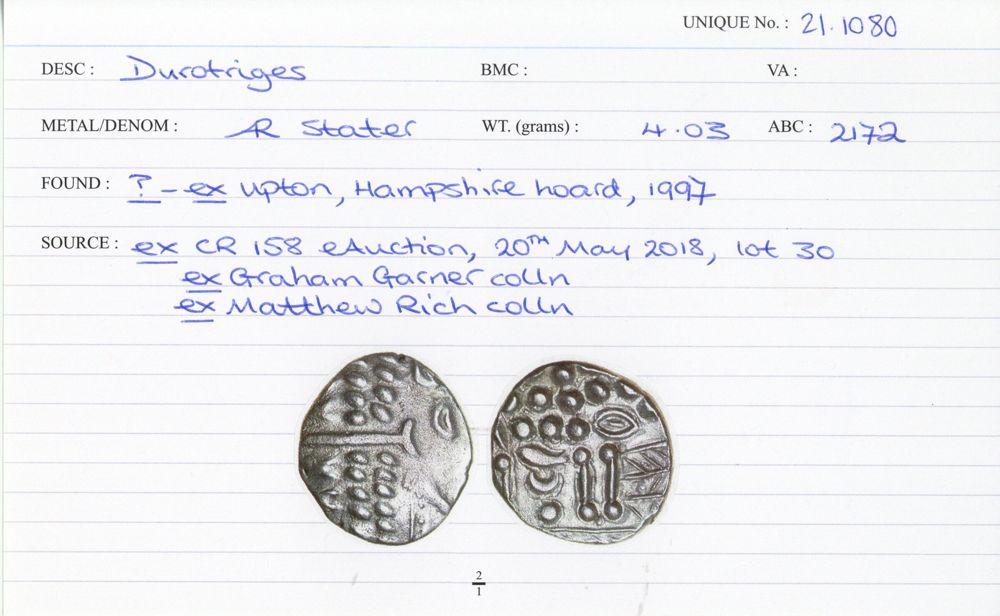 UNIQUE No. : 21.1080
DESC : Durotriges BMC : VA :
METAL/DENOM : AR Stater WT. (grams) : 4.03 ABC : 2172
FOUND : ? - ex Upton, Hampshire hoard, 1997
SOURCE : ex CR 158 eAuction, 20TH May 2018, lot 30
ex Graham Garner colln
ex Matthew Rich colln
2
1